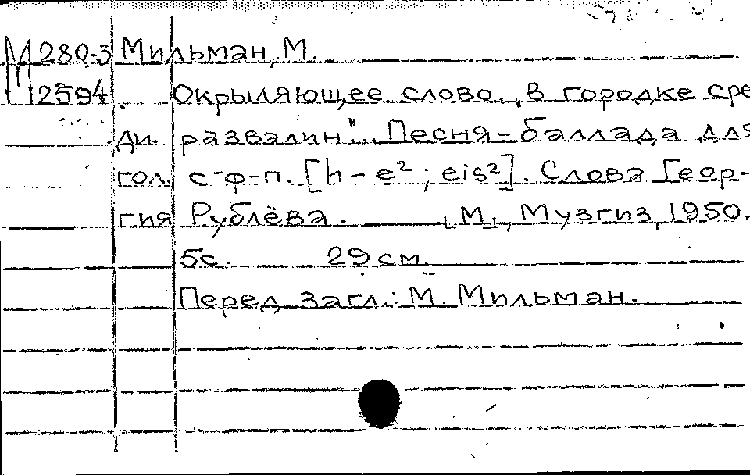 М 280-3 Мильман, М.
12594 Окрыляющее слово. „В городке сре-
ди развалин". Песня-баллада для
гол. с ф-п. [h - e²; eis²]. Слова Геор-
гия Рублёва. М., Музгиз, 1950.
5с. 29 см.
Перед загл.: М. Мильман.